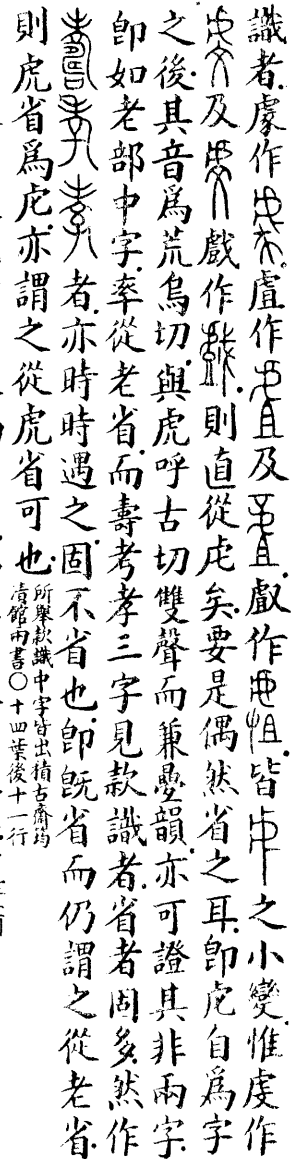 識者虡作䖍作及䖒作皆之小變惟虔作
及戲作則直從虍矣要是偶然省之耳卽虍自爲字
之後其音爲荒烏切與虎呼古切雙聲而兼疊韻亦可證其非兩字
卽如老部中字率從老省而壽考孝三字見款識者省者固多然作
者亦時時遇之固不省也卽旣省而仍謂之從老省
則虎省爲虍亦謂之從虎省可也所舉款識中字皆出積古齋筠
凊館兩書〇十四葉後十一行